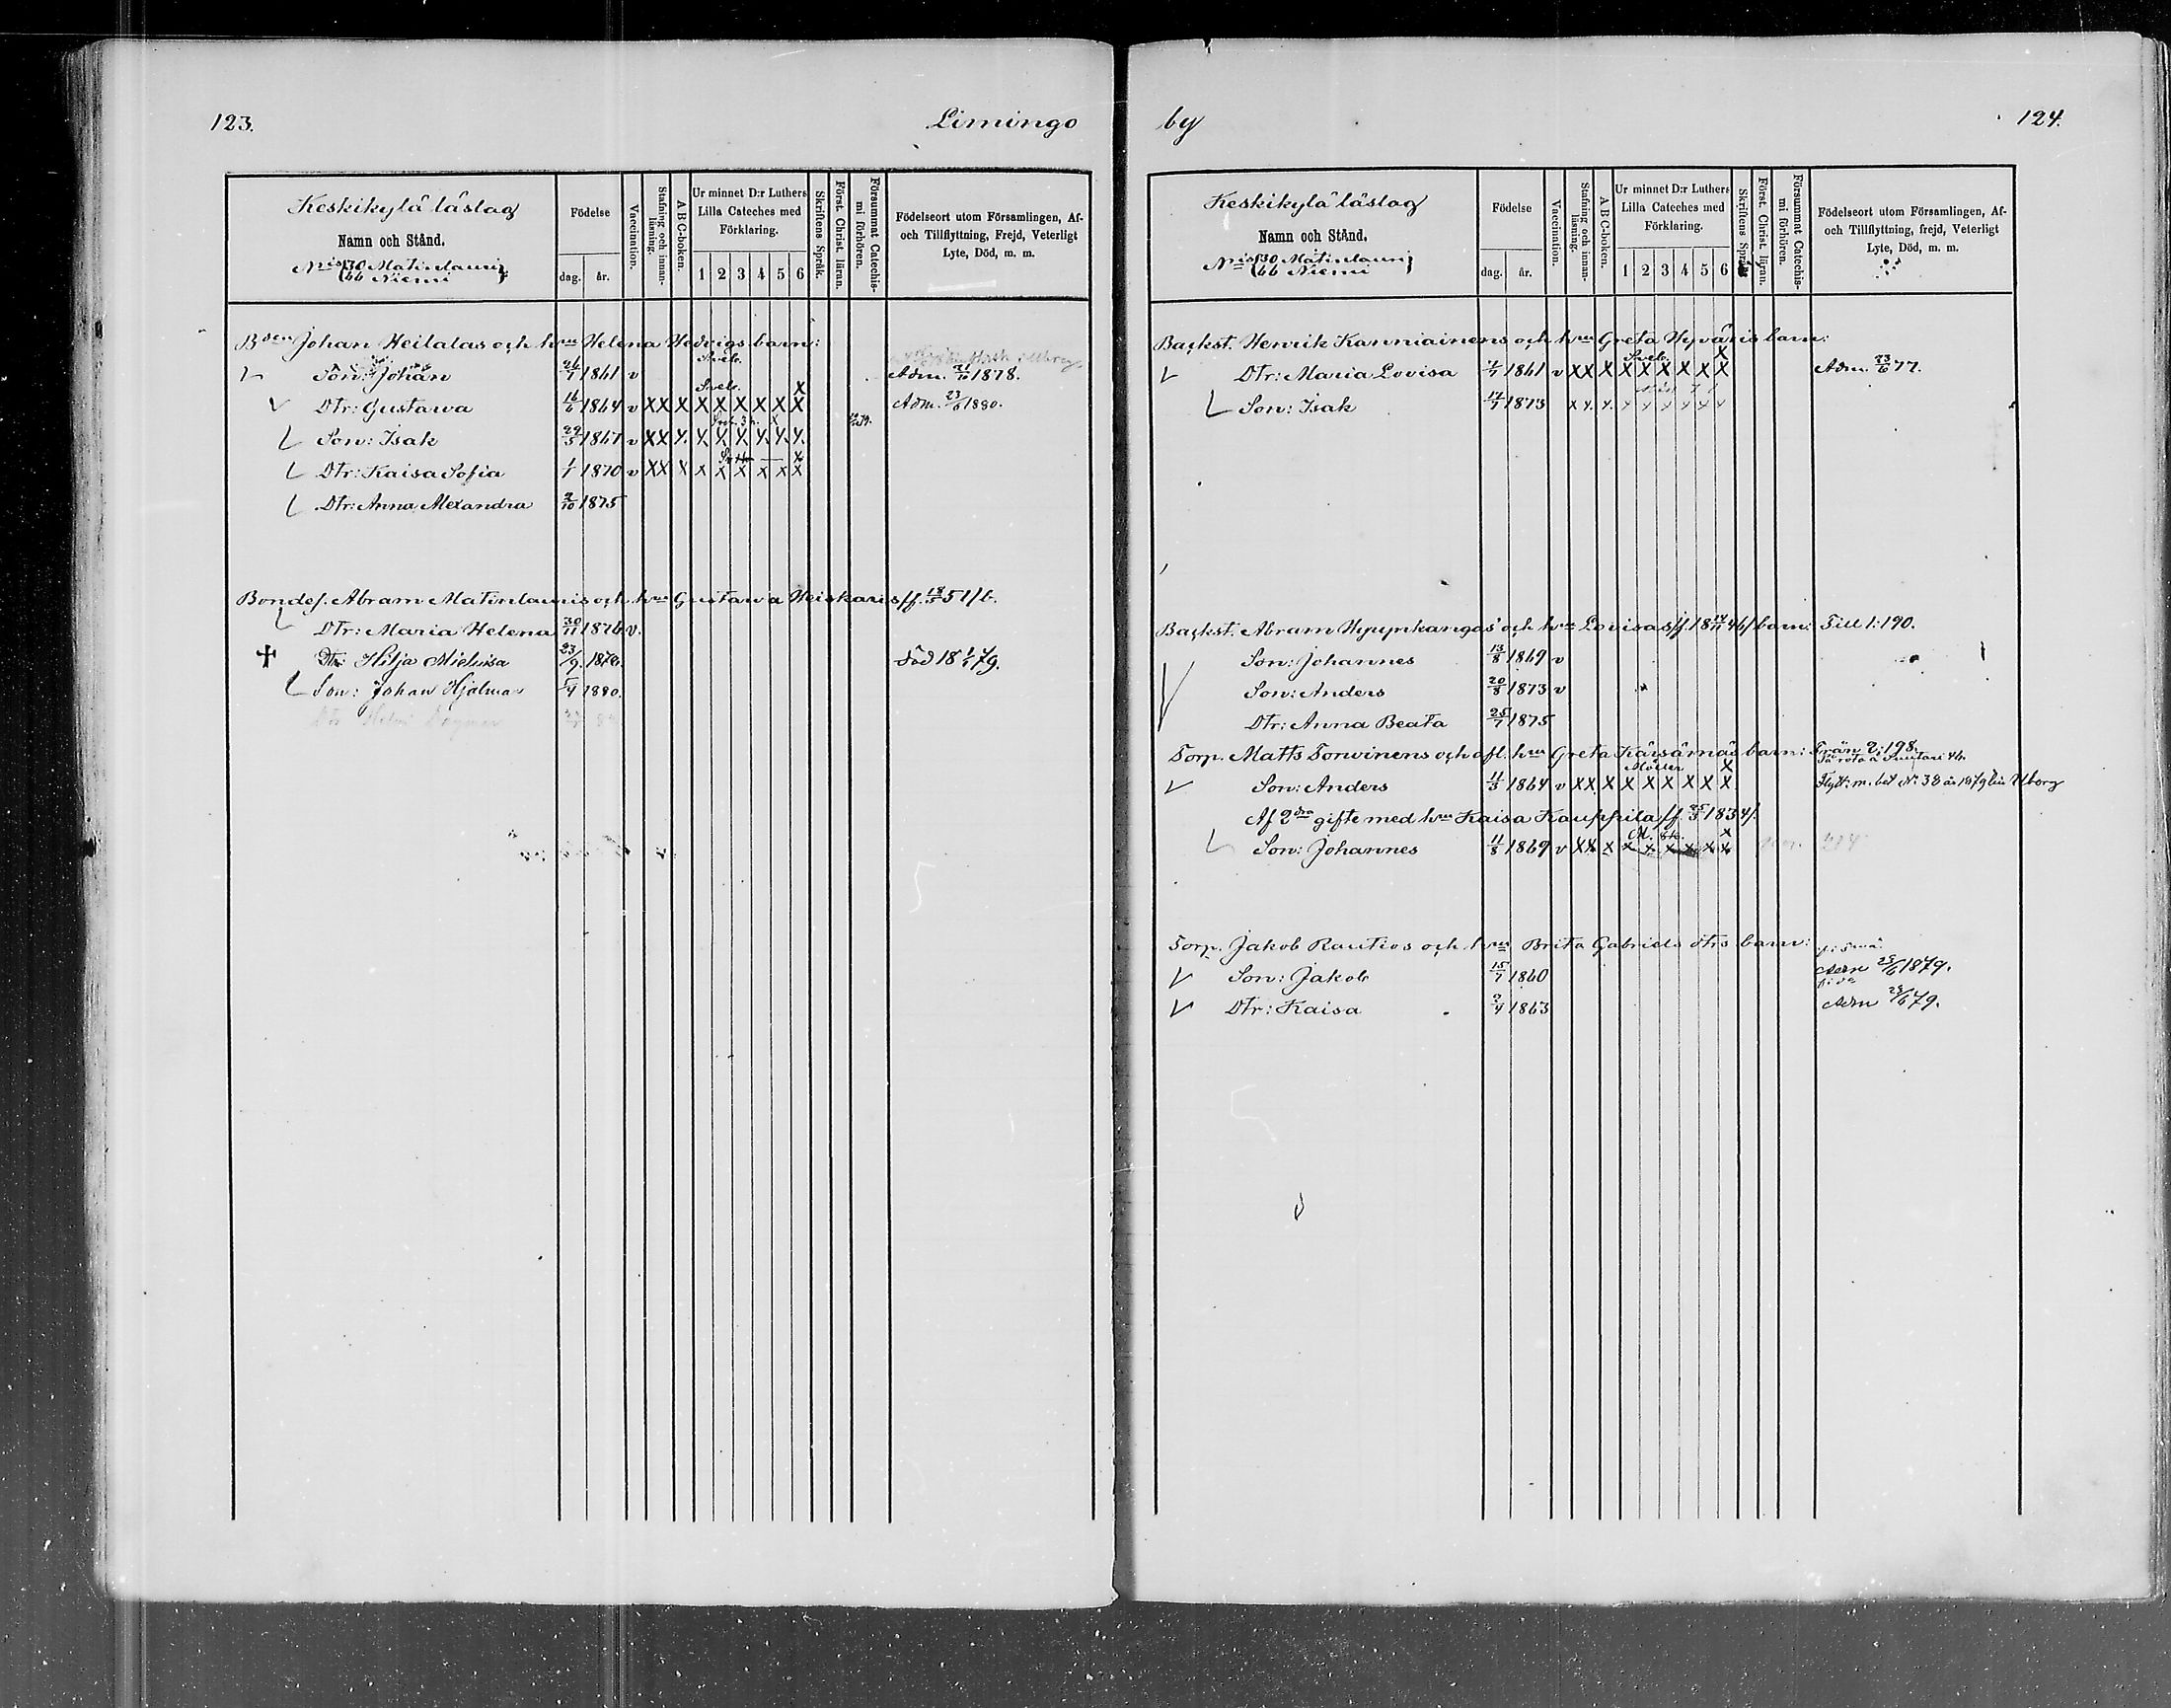 123.
Limingo
Keskikylä läslag
Namn och Stånd.
N:is 30 Matinlauri
66 Niemi
Födelse
dag.
år.
Vaccination.
Stafning och innan-
läsning.
A B C-boken.
Ur minnet D:r Luthers
Lilla Cateches med
Förklaring.
1 2 3 4 5 6
Skriftens Språk.
Först. Christ. läran.
Försummat Catechis-
mi förhören.
Födelseort utom Församlingen, Af-
och Tillflyttning, Frejd, Veterligt
Lyte, Död, m. m.
Bden Johan Heilalas och hun Helena Hedvigs barn:
Sveb.
Son: Johan 26/7 1861 v Adm. 21/6 1878.
Sveb. X
Dtr: Gustawa 16/6 1864 v XX X X X X X X X Adm. 23/6 1880.
Son: Isak 29/5 1867 v XX X. X. X. X. X. X. X.
Dtr: Kaisa Sofia 1/1 1870 v XX X X X X X X X
Dtr: Anna Alexandra 2/10 1875
Bondes. Abram Matinlauris och hun Gustawa Heiskaris /f. 18/5 51/ b.
Dtr: Maria Helena 30/11 1876 v.
Dtr: Hilja Mieluisa 23/9. 1878. död 18 1/1 79.
Son: Johan Hjalmar 5/4 1880.
by
124.
Keskikylä läslag
Namn och Stånd.
N:is 30 Matinlauri
66 Niemi
Födelse
dag.
år.
Vaccination.
Stafning och innan-
läsning.
A B C-boken.
Ur minnet D:r Luthers
Lilla Cateches med
Förklaring.
1 2 3 4 5 6
Skriftens Språk
Först. Christ. läran.
Försummat Catechis-
mi förhören.
Födelseort utom Församlingen, Af-
och Tillflyttning, frejd, Veterligt
Lyte, Död, m. m.
Backst. Henrik Kanniainens och hun Greta Hyväris barn:
Sveb. X
Dtr: Maria Lovisa 1/7 1861 v XX X X X X X X X Adm. 23/6 77.
Son: Isak 14/7 1873
Backst. Abram Hyynkangas och hun Lovisas /f. 18 14/11 46/ barn: Till 1:190.
Son: Johannes 13/8 1869 v
Son: Anders 20/8 1873 v
Dtr: Anna Beata 25/7 1875
Torp. Matts Torvinens och afl. hun Greta Kärsämäs barn: Från 2:198.
Möller X
Son: Anders 11/3 1864 v XX X X X X X X X Flytt: m. bet. No 38 år 1879 till Uborg
Af 2dra gifte med hun Kaisa Kauppila /f. 25/3 1834/.
Son: Johannes 11/8 1869 v XX X X X X X X X
Torp. Jakob Rautios och hun Brita Gabriels dtrs barn:
Son: Jakob 15/7 1860 Adm 28/6 1879.
Dtr: Kaisa 2/4 1863 Adm 28/6 79.